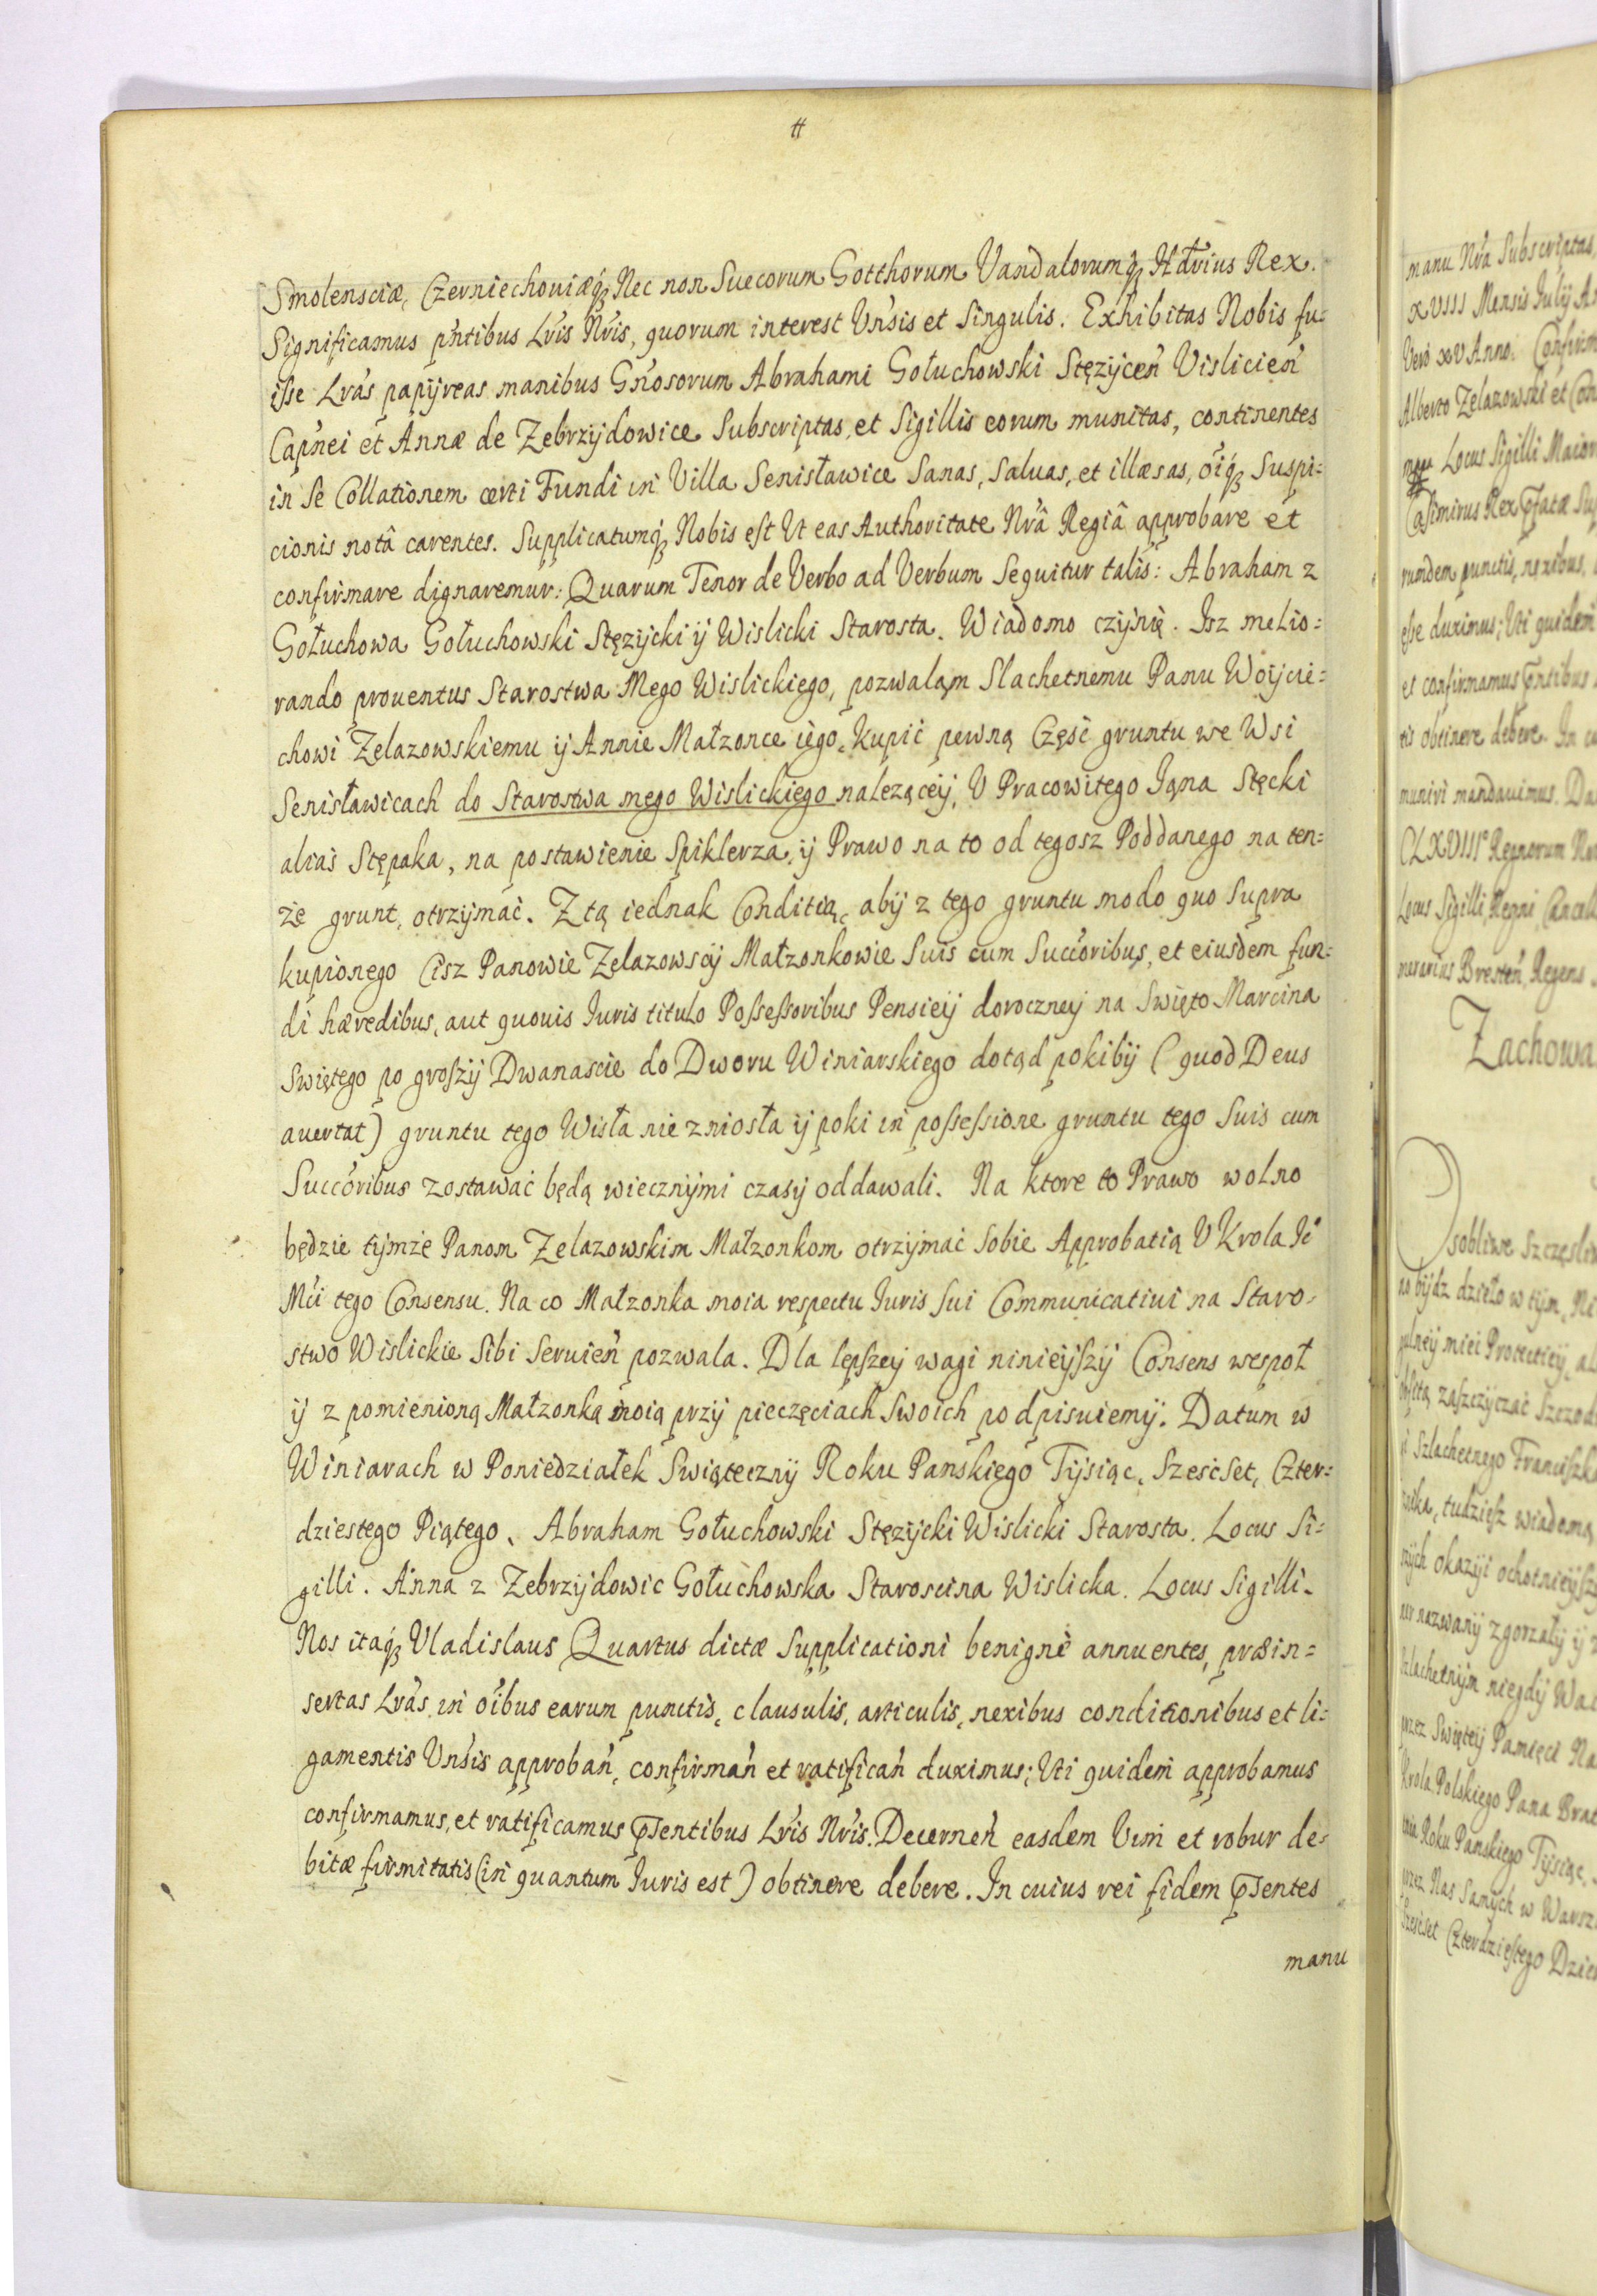 #
Smolensciæ, Czerniechouiæq́ꝫ Nec non Suecorum Gotthorum Vandalorumq́ꝫ Hdrius Rex.
Significamus pntibus Lris Nris, quorum interest Vnsis et Singulis. Exhibitas Nobis fu=
isse Lras papijreas manibus Gnosorum Abrahami Gołuchowski Stęzijceń Visliceń
Capnei et Annæ de Zebrzijdowice Subscriptas, et Sigillis eorum munitas, continentes
in se Collationem certi Fundi in Villa Senisławice Sanas, Saluas, et illæsas, oiq́ꝫ Suspi=
cionis notâ carentes. Supplicatumq́ꝫ Nobis est Vt eas Authoritate Nrâ Regiâ approbare et
confirmare dignaremur: Quarum Tenor de Verbo ad Verbum Sequitur talis: Abraham z
Gołuchowa Gołuchowski Stęzijcki ij Wislicki Starosta. Wiadomo czijnię. Isz melio=
rando prouentus Starostwa Mego Wislickiego, pozwaląm Slachetnemu Panu Woijcie=
chowi Zelazowskiemu ij Annie Małzonce iego, kupić pewną Część gruntu we Wsi
Senisławicach do Starostwa mego Wislickiego nalezącéij, V Pracowitego Iąna Stęcki
alias Stępaka, na postawienie Spiklerza, ij Prawo na to od tegosz Poddanego na ten=
że grunt, otrzijmać. Z tą iednak Conditią, abij z tego gruntu modo quo supra
kupionego Cisz Panowie Zelazowscij Małzonkowie Suis cum Succoribus, et eiusdem fun=
di hæredibus, aut quouis Iuris titulo Possessoribus Pensieij doroczneij na Swięto Marcina
Swiętego po groszij Dwanascie do Dworu Winiarskiego dotąd pokibij (quod Deus
auertat) gruntu tego Wisła nie zniosła ij poki in possessione gruntu tego Suis cum
Succoribus zostawać będą wiecznijmi czasij oddawali. Na ktore to Prawo wolno
będzie tijmże Panom Zelazowskim Małzonkom otrzijmać sobie Approbatią V Krola Ie°
Mci tego Consensu. Na co Małzonka moia respectu Iuris sui Communicatiui na Staro=
stwo Wislickie Sibi Seruień pozwala. Dla lepszeij wagi ninieijszij Consens wespoł
ij z pomienioną Małzonką moią przij pieczęciach Swoich podpisuiemij. Datum w
Winiarach w Poniedziałek Swiątecznij Roku Panskiego Tijsiąc, Szesćset, Czter=
dziestego Piątego, Abraham Gołuchowski Stęzijcki Wislicki Starosta. Locus Si=
gilli. Anna z Zebrzijdowic Gołuchowska Staroscina Wislicka. Locus Sigilli.
Nos itaq́ꝫ Vladislaus Quartus dictæ Supplicationi benignè annuentes, præin=
sertas Lras, in oibus earum punctis, clausulis, articulis, nexibus conditionibus et li=
gamentis Vnsis approbań, confirmań et ratificań duximus; Vti quidem approbamus
confirmamus, et ratificamus p̃sentibus Lris Nris. Decerneń easdem Vim et robur de=
bitæ firmitatis (in quantum Iuris est) obtinere debere. In cuius rei fidem p̃sentes
manu
manu Nra Subscriptas
XVIII Mensis Iulij
Vero XV Anno. 
Alberto Zelazowski et
Locus Sigilli Maior
Casimirus Rex p̃fatæ
rumdem punctis, nexibus,
esse duximus; Vti quidem
et confirmamus p̃ntibus
tis obtinere debere. In
muniri mandauimus.
CLXVIII° Regnorum
Locus Sigilli Regni
Bresteń, Regens
Zachowa
Osobliwe Szczęsli
no bijdz dzieło w tijm, Ni
Protectieij,
zaszczijczać Szczod
Szlachetnego Franciszk
tudziesz wiadomą
okazij ochotnieijsz
nazwanij zgorzałij ij
Szlachetnijm niegdij
przez Swięteij Pamięci Na
Krola Polskiego Pana Brat
Roku Panskiego Tijsiąc,
przez Nas Samijch w Warsz
Szescset Czterdziestego Dzie